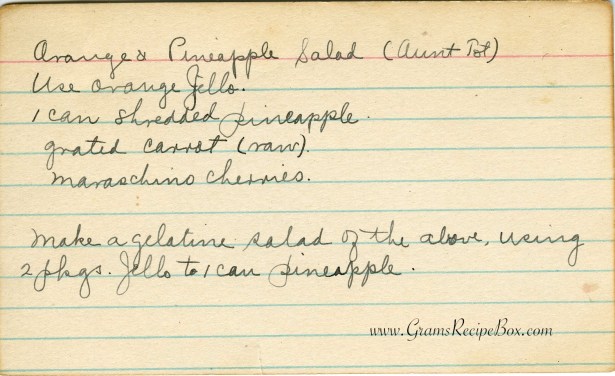 Orange & Pineapple Salad (Aunt Pol)
Use orange Jello.
1 can shredded pineapple.
grated carrot (raw).
maraschino cherries.
Make a gelatine salad of the above, using
2 pkgs. Jello to 1 can pineapple.
www.GramsRecipeBox.com